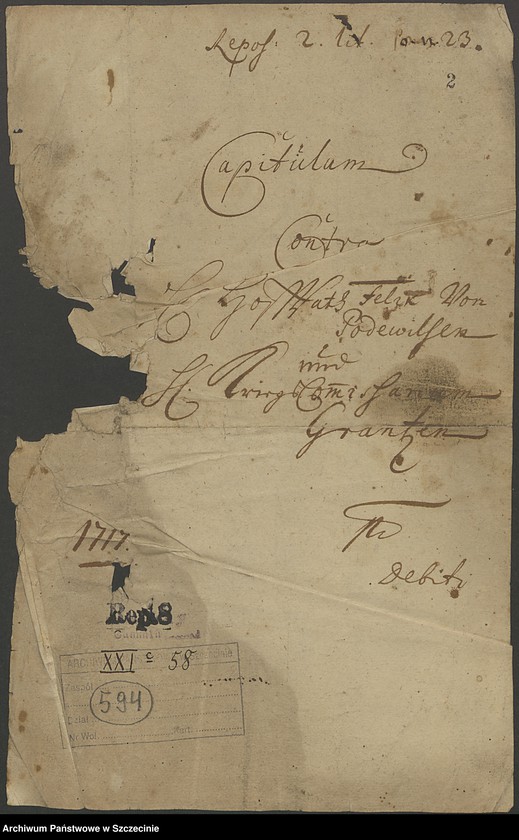 Repos: 2. lit. n. 23.
2
Capitulum
Contra
H. Hoff Raht Felix Von
Podewilsen
und
H. Kriegs Commissarium
Grantzen
Debiti
1717.
Rep. 8
XXI c 58
594
Dział
Nr. Wol.
Archiwum Państwowe w Szczecinie